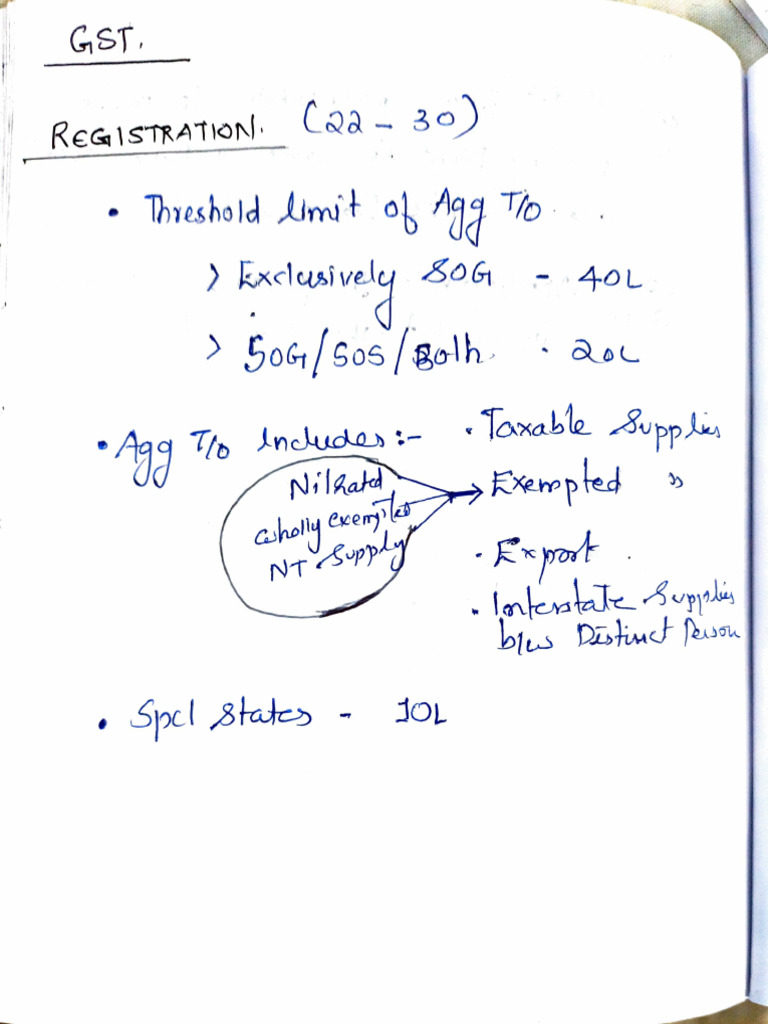 GST.
REGISTRATION. (22 - 30)
• Threshold limit of Agg T/O
> Exclusively SOG - 40L
> SOG/SOS/Both. · 20L
• Agg T/O Includes :- • Taxable Supplies
Nil Rated
wholly exempted
NT Supply
Exempted "
• Export.
• Interstate Supplies
b/w Distinct Person
• Spcl States - 10L